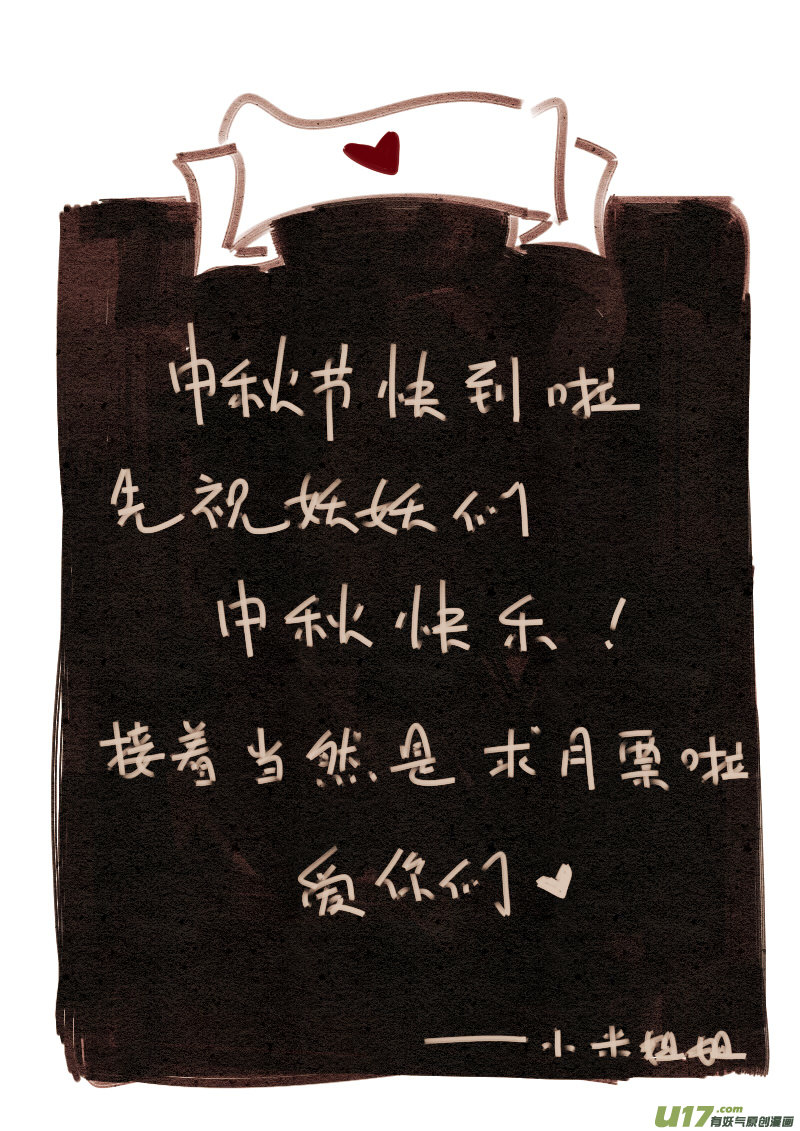 中秋节快到啦
先祝妖妖们
中秋快乐！
接着当然是求月票啦
爱你们
——小米
U17.com
有妖气原创漫画